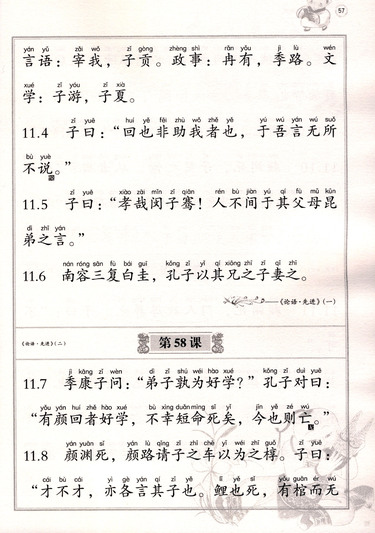 57
yán yǔ zǎi wǒ zǐ gòng zhèng shì rǎn yǒu jì lù wén
言语：宰我，子贡。政事：冉有，季路。文
xué zǐ yóu zǐ xià
学：子游，子夏。
zǐ yuē huí yě fēi zhù wǒ zhě yě yú wú yán wú suǒ
11.4 子曰：“回也非助我者也，于吾言无所
bù yuè
不说。”
zǐ yuē xiào zāi mǐn zǐ qiān rén bù jiàn yú qí fù mǔ kūn
11.5 子曰：“孝哉闵子骞！人不间于其父母昆
dì zhī yán
弟之言。”
nán róng sān fù bái guī kǒng zǐ yǐ qí xiōng zhī zǐ qì zhī
11.6 南容三复白圭，孔子以其兄之子妻之。
《论语·先进》（一）
《论语·先进》（二）
第58课
jì kāng zǐ wèn dì zǐ shú wéi hào xué kǒng zǐ duì yuē
11.7 季康子问：“弟子孰为好学？”孔子对曰：
yǒu yán huí zhě hào xué bù xìng duǎn mìng sǐ yǐ jīn yě zé wú
“有颜回者好学，不幸短命死矣，今也则亡。”
yán yuān sǐ yán lù qǐng zǐ zhī chē yǐ wéi zhī guǒ zǐ yuē
11.8 颜渊死，颜路请子之车以为之椁。子曰：
cái bù cái yì gè yán qí zǐ yě lǐ yě sǐ yǒu guān ér wú
“才不才，亦各言其子也。鲤也死，有棺而无